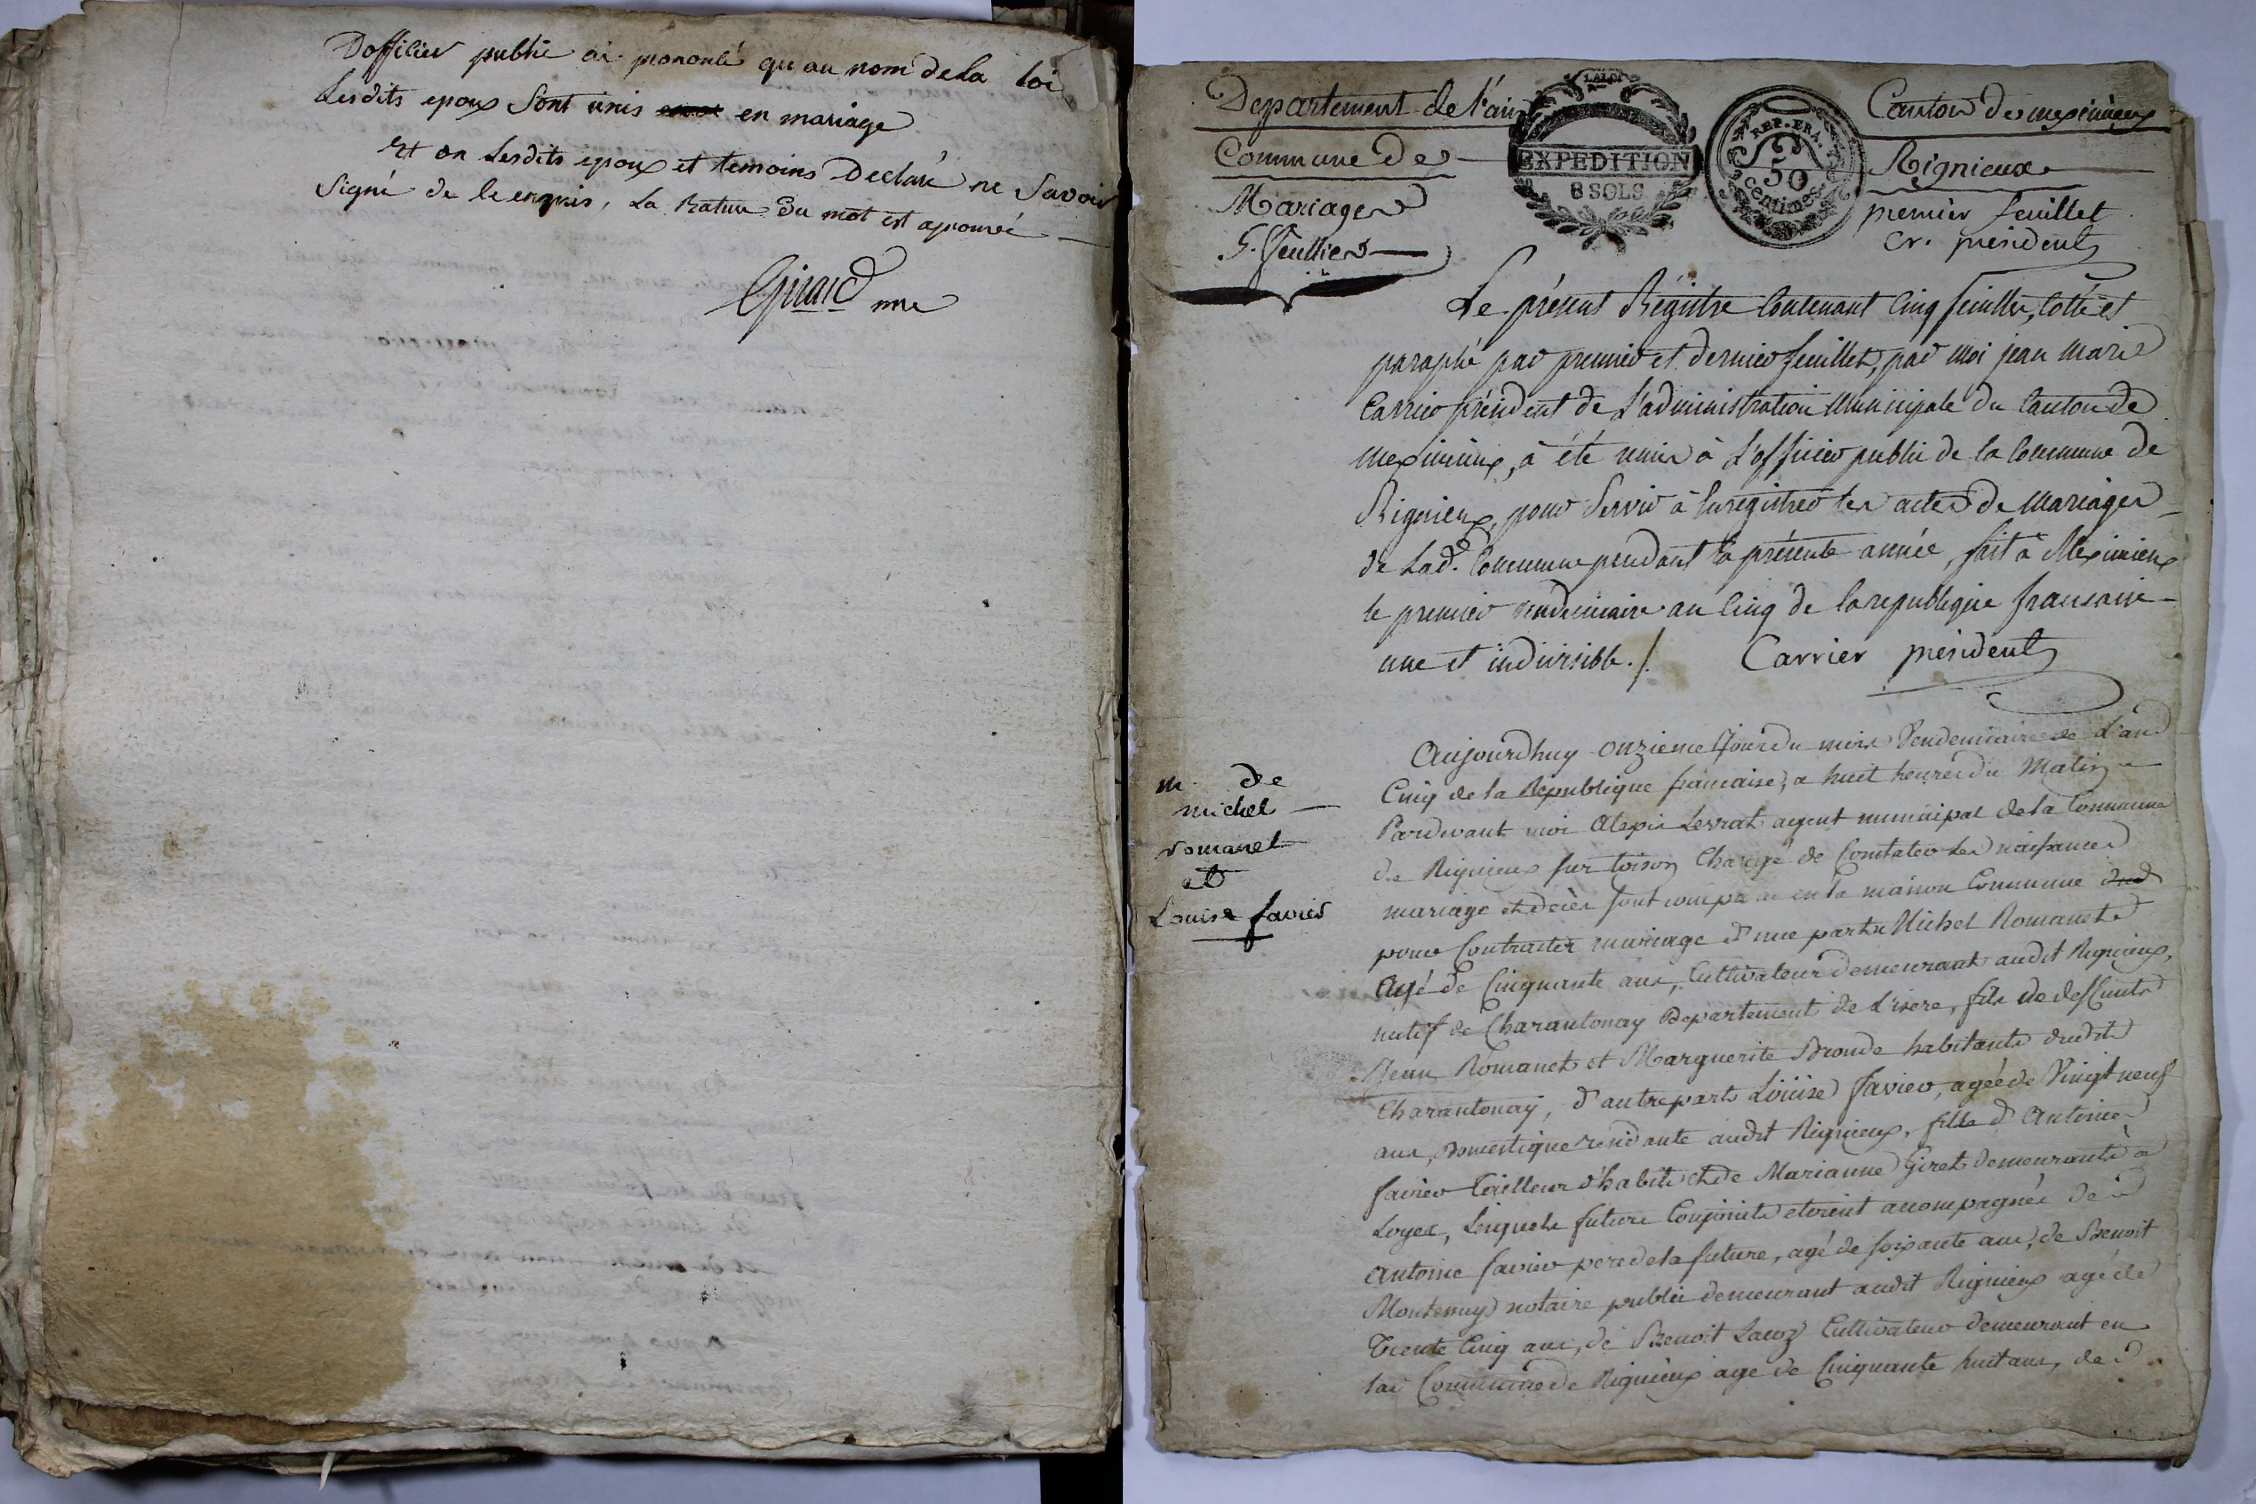 D'officier public ai prononcé qu au nom de la loi
Lesdits epoux sont unis en mariage
Et on Lesdits epoux et temoins Declaré ne Savoir
Signé de le enquis, La Rature Du mot est aprouvé
Girard
Departement de l'ain
Commune de
Mariages
5. feuillets
LA LOI
EXPEDITION
8 SOLS
REP. FRA.
50
centimes
Canton de meximieux
Rignieux
premier feuillet
cr. président
Le présent Régistre Contenant Cinq feuillets, cotté et
paraphé par premier et dernier feuillet, par moi jean Marie
Carrier président de L'administration Municipale du Canton de
Meximieux, à été remis à L'officier public de la Commune de
Rignieux, pour Servir à Enregistrer les actes de Mariages
de Lad. Commune pendant la présente année, fait à Meximieux
le premier vendemiaire an Cinq de la republique francaise
une et indivisible./. Carrier président
m. de
michel
romanet
et
Louise favier
Aujourdhuy onzieme Jour du mois Vendemiaire de L'an
Cinq de la Republique francaise, a huit heures du Matin
Pardevant moi Alexis Levrat agent municipal de la Commune
de Rignieux sur toison Chargé de Constater les naissances
mariage et décès sont comparu en la maison Commune
pour Contracter mariage d'une parte Michel Romanet
Agé de Cinquante ans, Cultivateur demeurant audit Rignieux,
natif de Charantonay Departement de L'isere, fils de deffunts
Jean Romanet et Marguerite Bronde habitants dudit
Charantonay, d'autre parts Louise favier, agée de Vingt neuf
ans, Domestique residante audit Rignieux, fille d'Antoine
favier tailleur d'habits et de Marianne Giret demeurants a
Loyes, Lesquels futurs Conjoints etoient acompagnés de
Antoine favier pere de la future, agé de soixante ans, de Benoit
Montenuy notaire public demeurant audit Rignieux agé de
Trente Cinq ans, de Benoit Lacoz Cultivateur demeurant en
lad Commune de Rignieux age de Cinquante huit ans, de